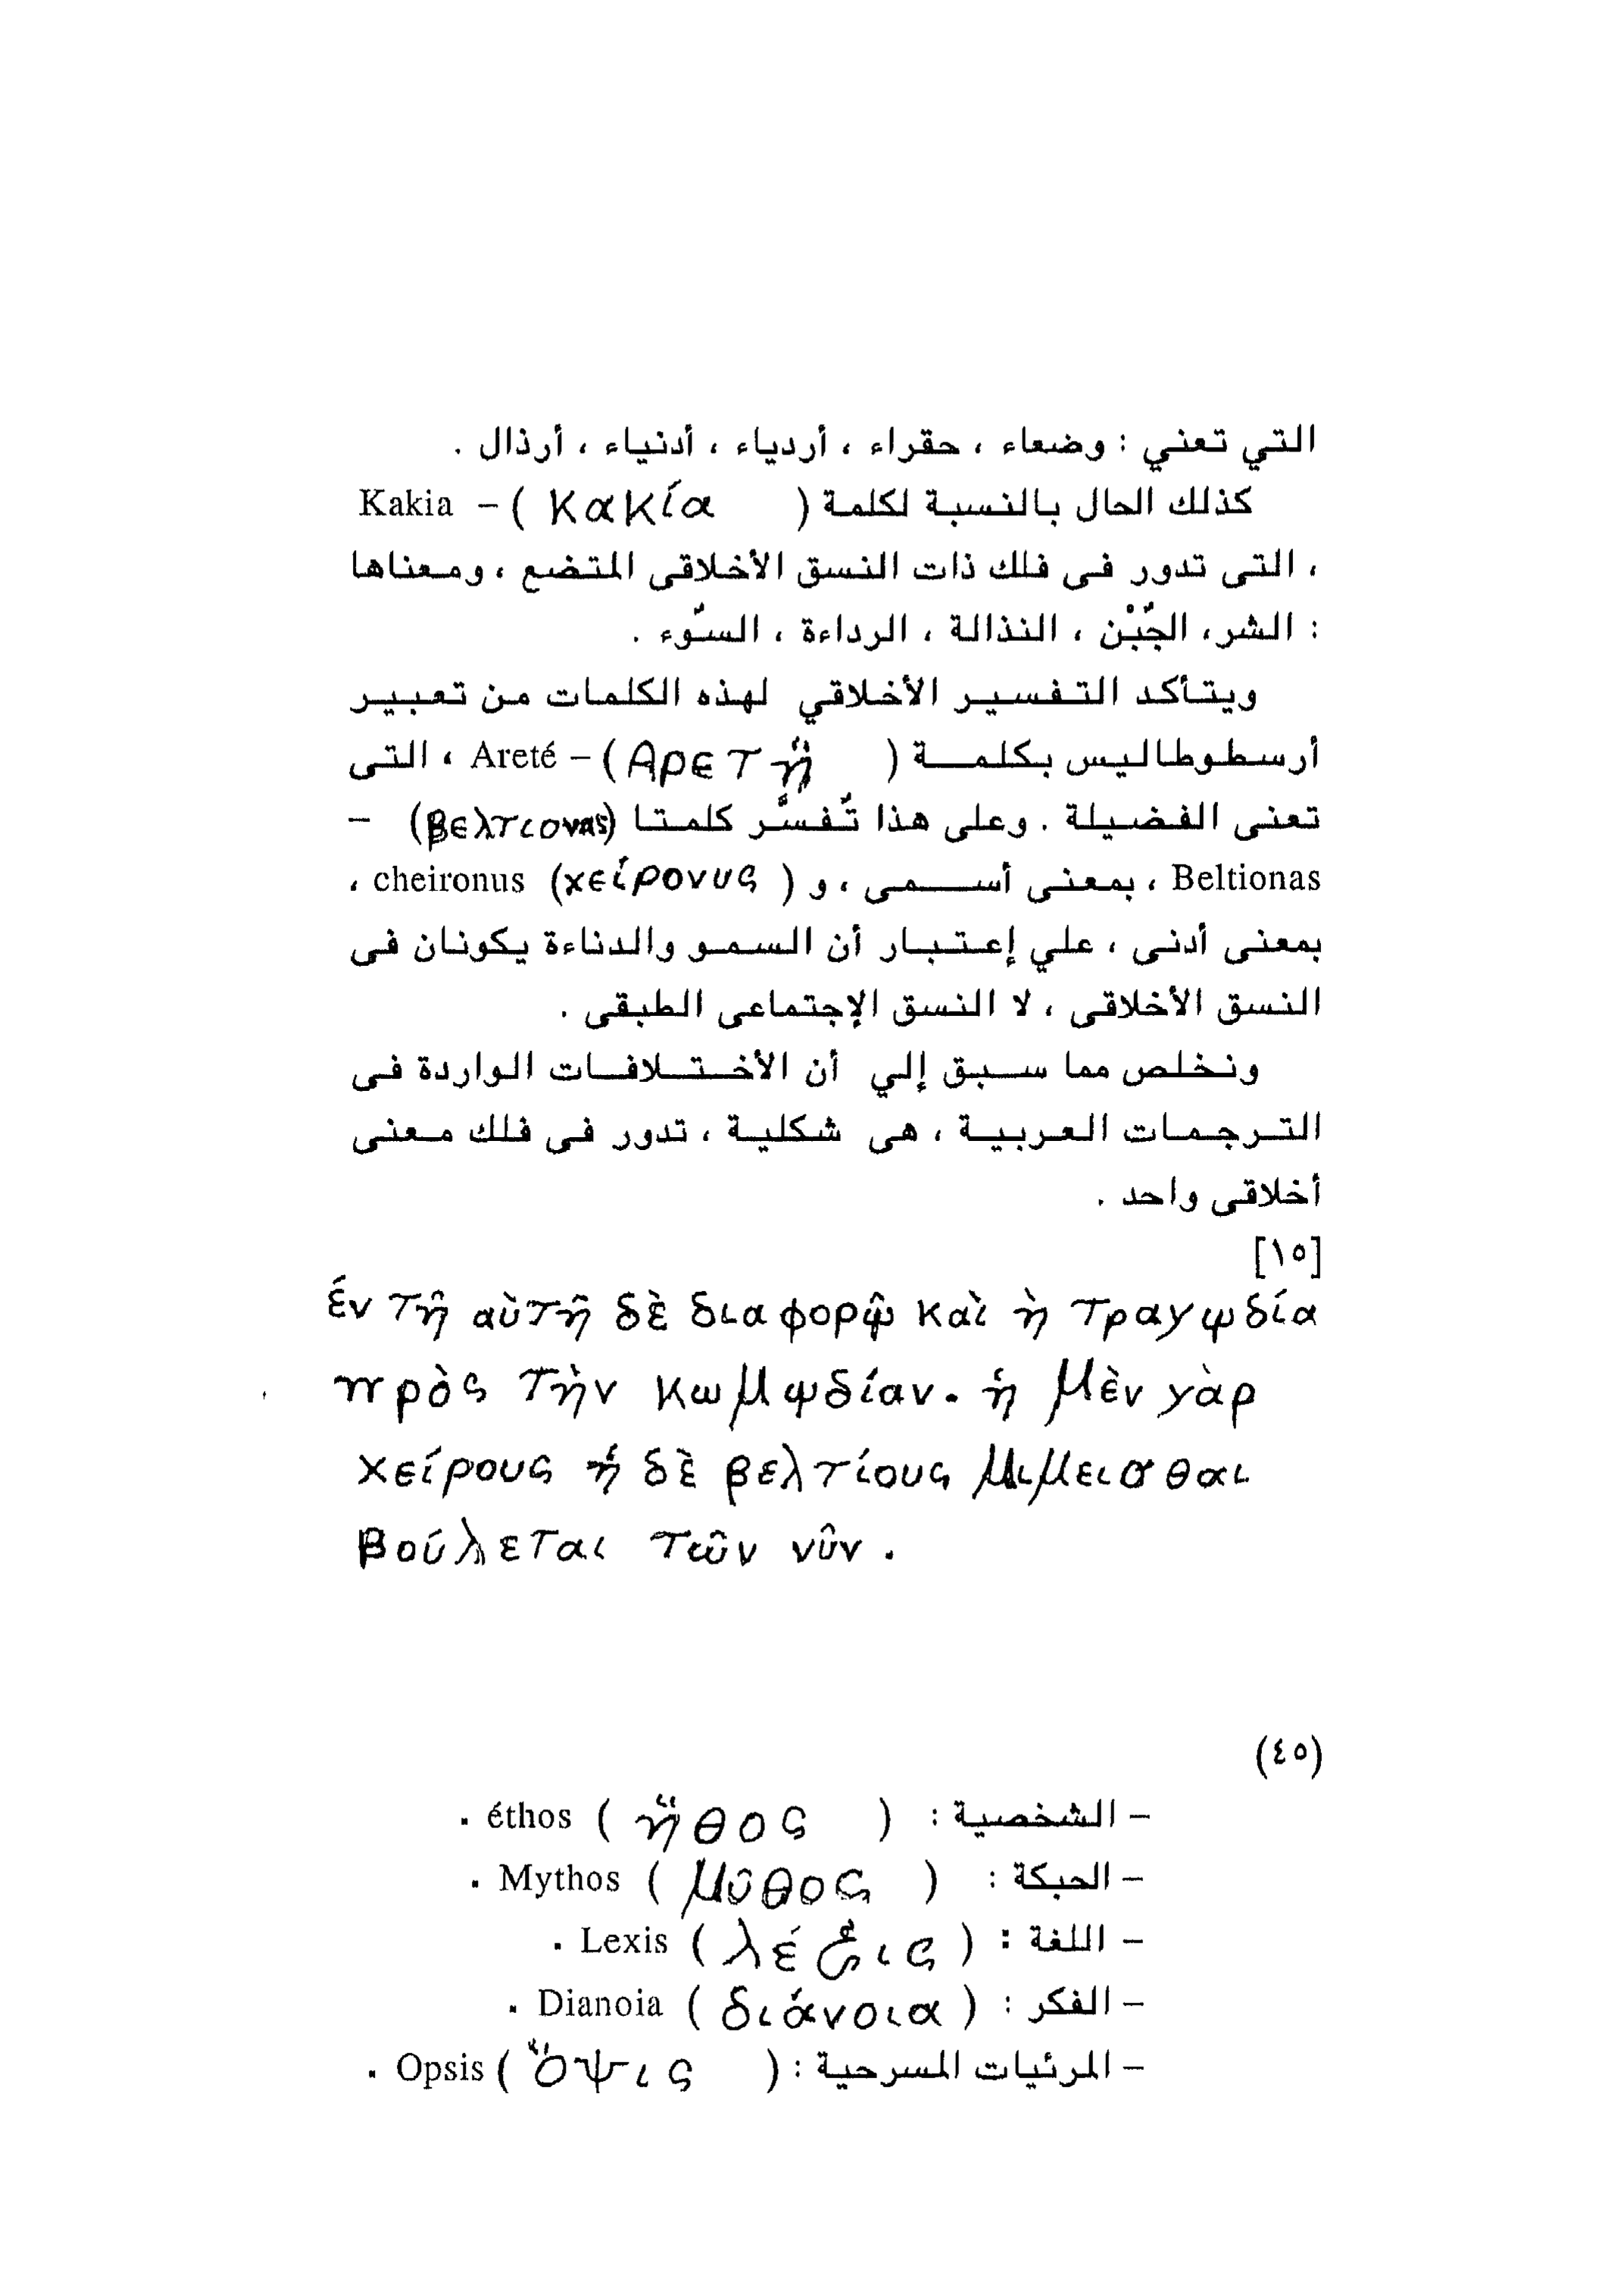 التي تعني : وضعاء ، حقراء ، أردياء ، أدنياء ، أرذال .
كذلك الحال بالنسبة لكلمة ( κακία ) – Kakia
، التى تدور فى فلك ذات النسق الأخلاقى المتضع ، ومعناها
: الشر، الجُبْن ، النذالة ، الرداءة ، السوُء .
ويتأكد التفسير الأخلاقي لهذه الكلمات من تعبير
أرسطوطاليس بكلمة ( Αρετἥ ) – Areté ، التى
تعنى الفضيلة . وعلى هذا تُفسَّر كلمتا (βελτιονας) –
Beltionas ، بمعنى أسمى ، و ( χείρονυς) cheironus ،
بمعنى أدنى ، علي إعتبار أن السمو والدناءة يكونان فى
النسق الأخلاقى ، لا النسق الإجتماعى الطبقى .
ونخلص مما سبق إلي أن الأختلافات الواردة فى
الترجمات العربية ، هى شكلية ، تدور فى فلك معنى
أخلاقى واحد .
[١٥]
έν τῆ αὺτῆ δὲ διαφορᾠ καὶ ὴ τραγῳδία
πρὸς τὴν κωμῳδίαν. ἡ μὲν γὰρ
χείρους ἡ δὲ βελτίους μιμεισθαι
βούλεται τῶν νῦν .
(٤٥)
– الشخصية : ( ἤθος ) éthos .
– الحبكة : ( μῦθος ) Mythos .
– اللغة : ( λέξις ) Lexis .
– الفكر : ( διάνοια ) Dianoia .
– المرئيات المسرحية : ( Ὄψις ) Opsis .